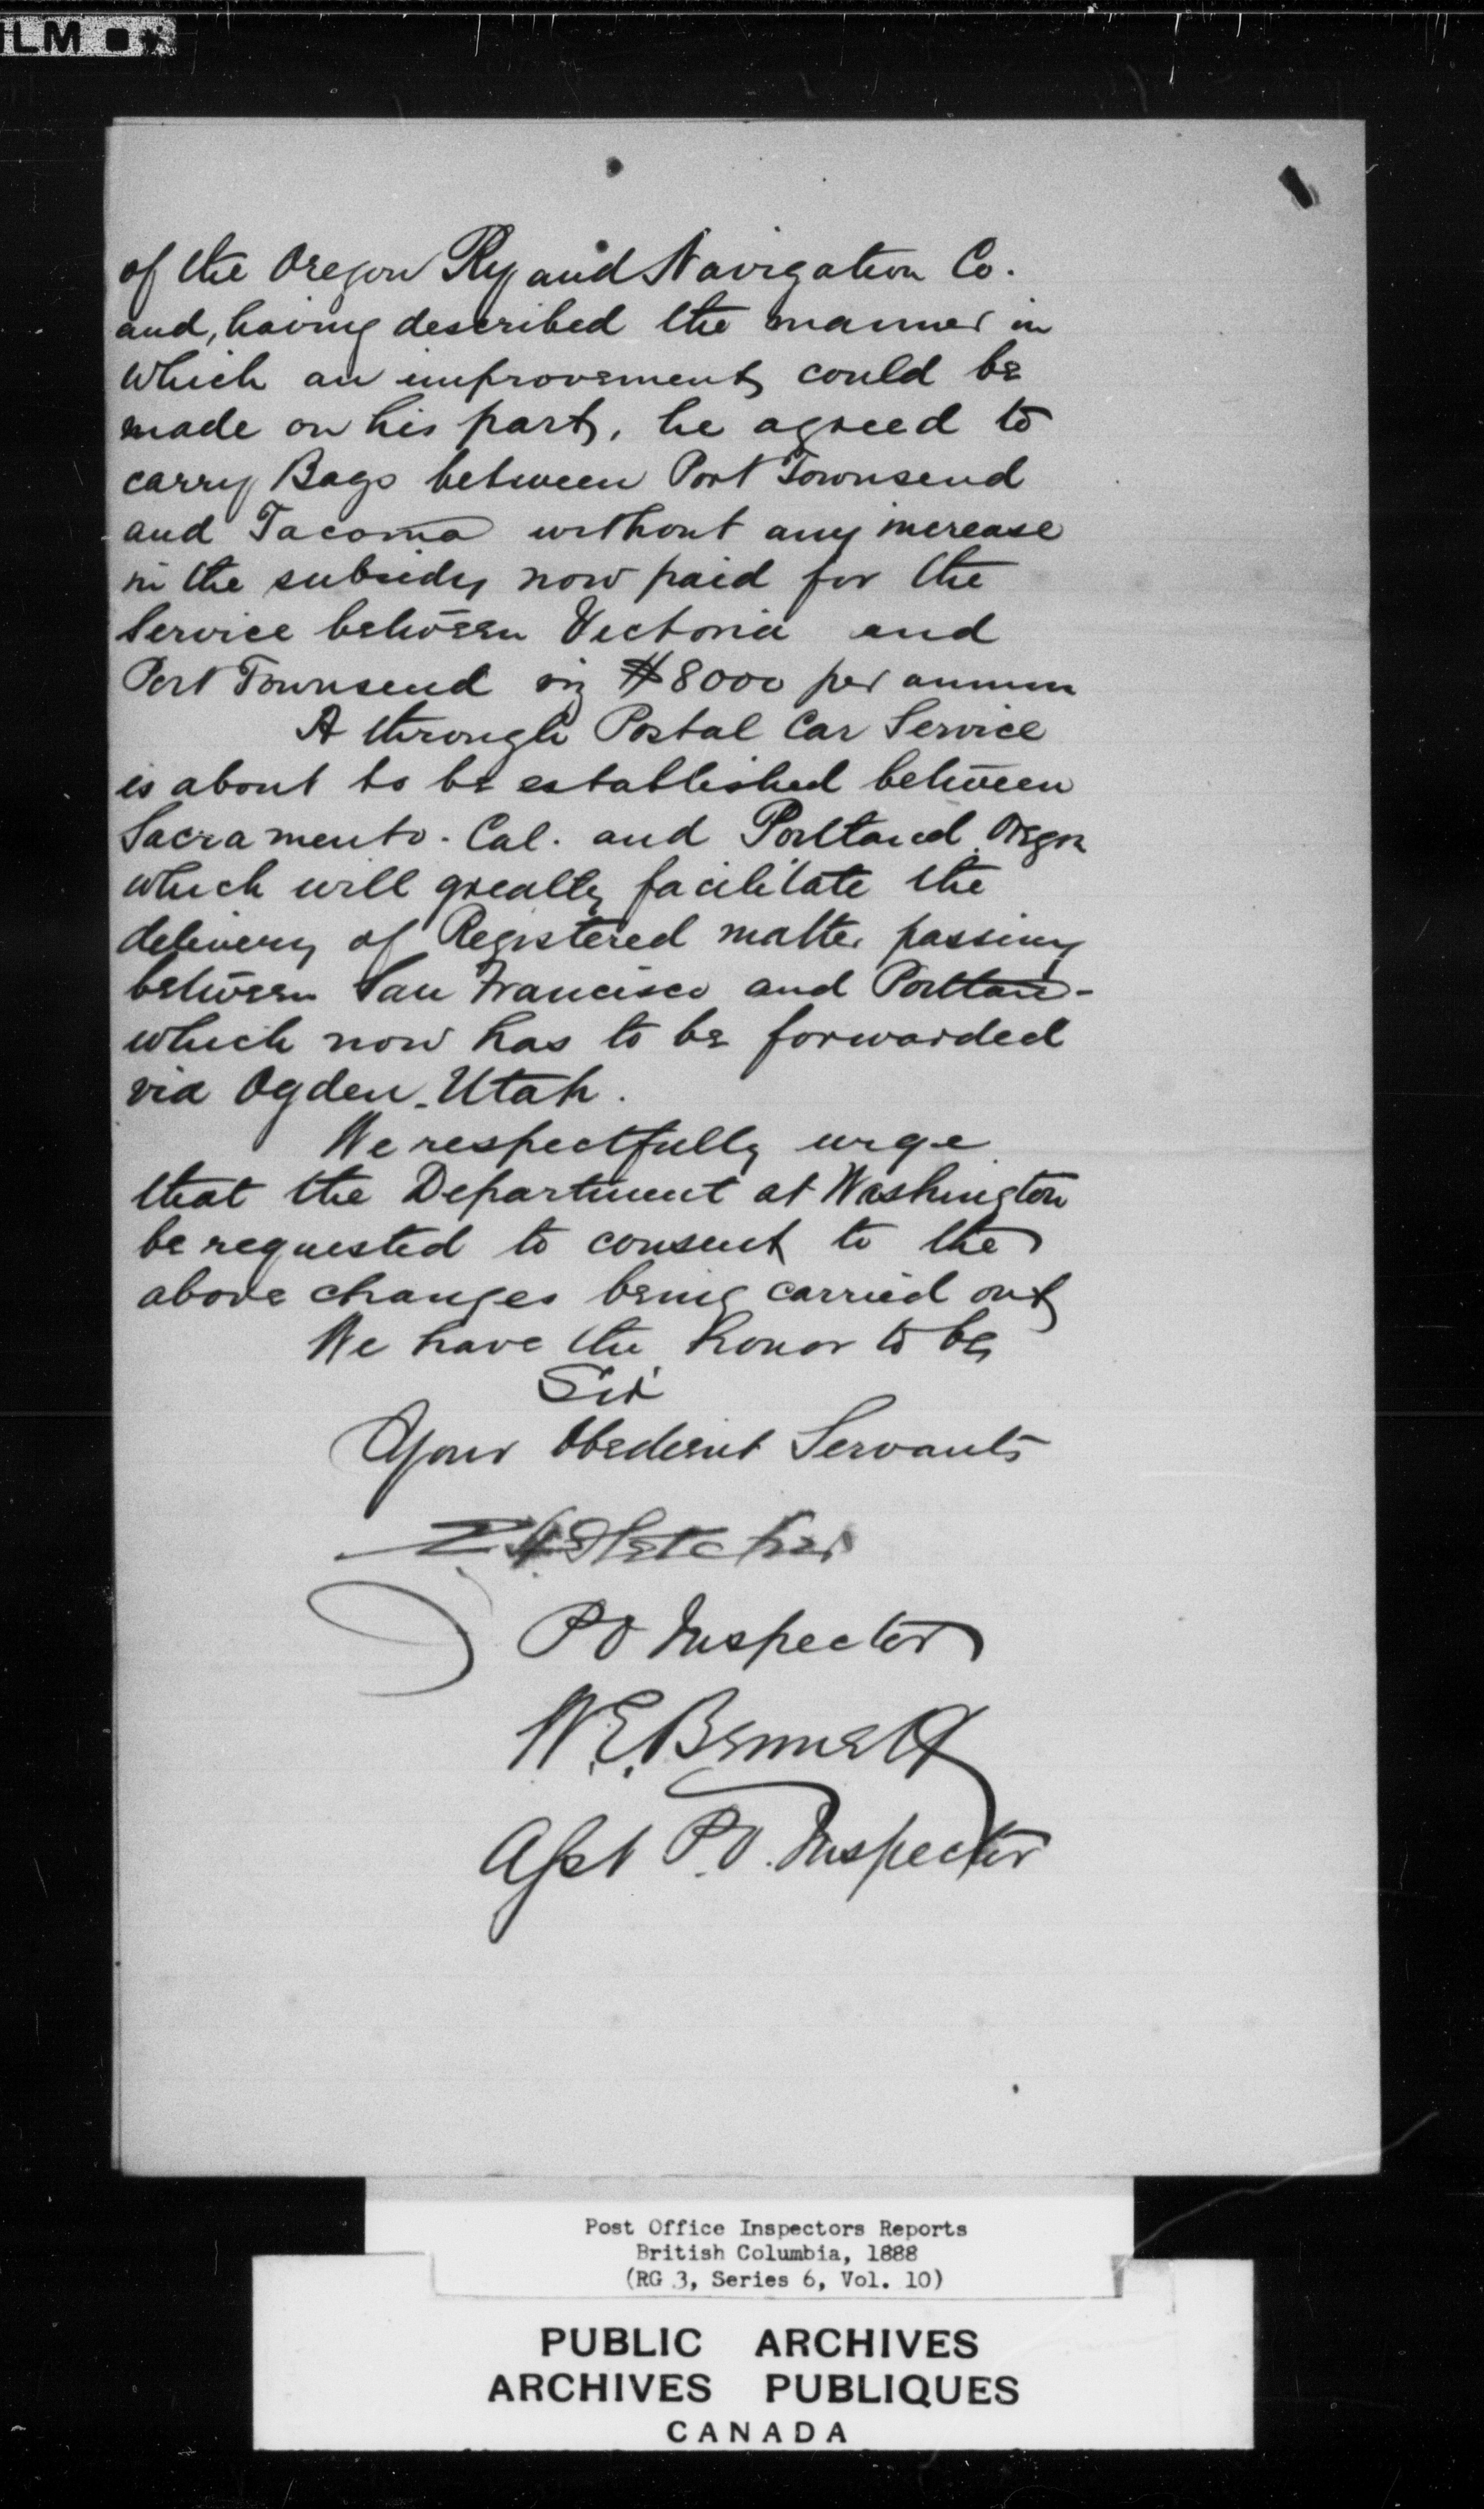 ILM
of the Oregon Ry and Navigation Co.
and, having described the manner in
which an improvement could be
made on his part, he agreed to
carry Bags between Port Townsend
and Tacoma without any increase
in the subsidy now paid for the
Service between Victoria and
Port Townsend viz $8000 per annum
A through Postal Car Service
is about to be established between
Sacramento. Cal. and Portland Oregon
which will greatly facilitate the
delivery of Registered matter passing
between San Francisco and Portland -
which now has to be forwarded
via Ogden. Utah.
We respectfully urge
that the Department at Washington
be requested to consent to the
above changes being carried out
We have the honor to be
Sir
Your Obedient Servants
Fletcher
P O Inspector
W. E. Bennett
Asst P. O. Inspector
Post Office Inspectors Reports
British Columbia, 1888
(RG 3, Series 6, Vol. 10)
PUBLIC ARCHIVES
ARCHIVES PUBLIQUES
CANADA